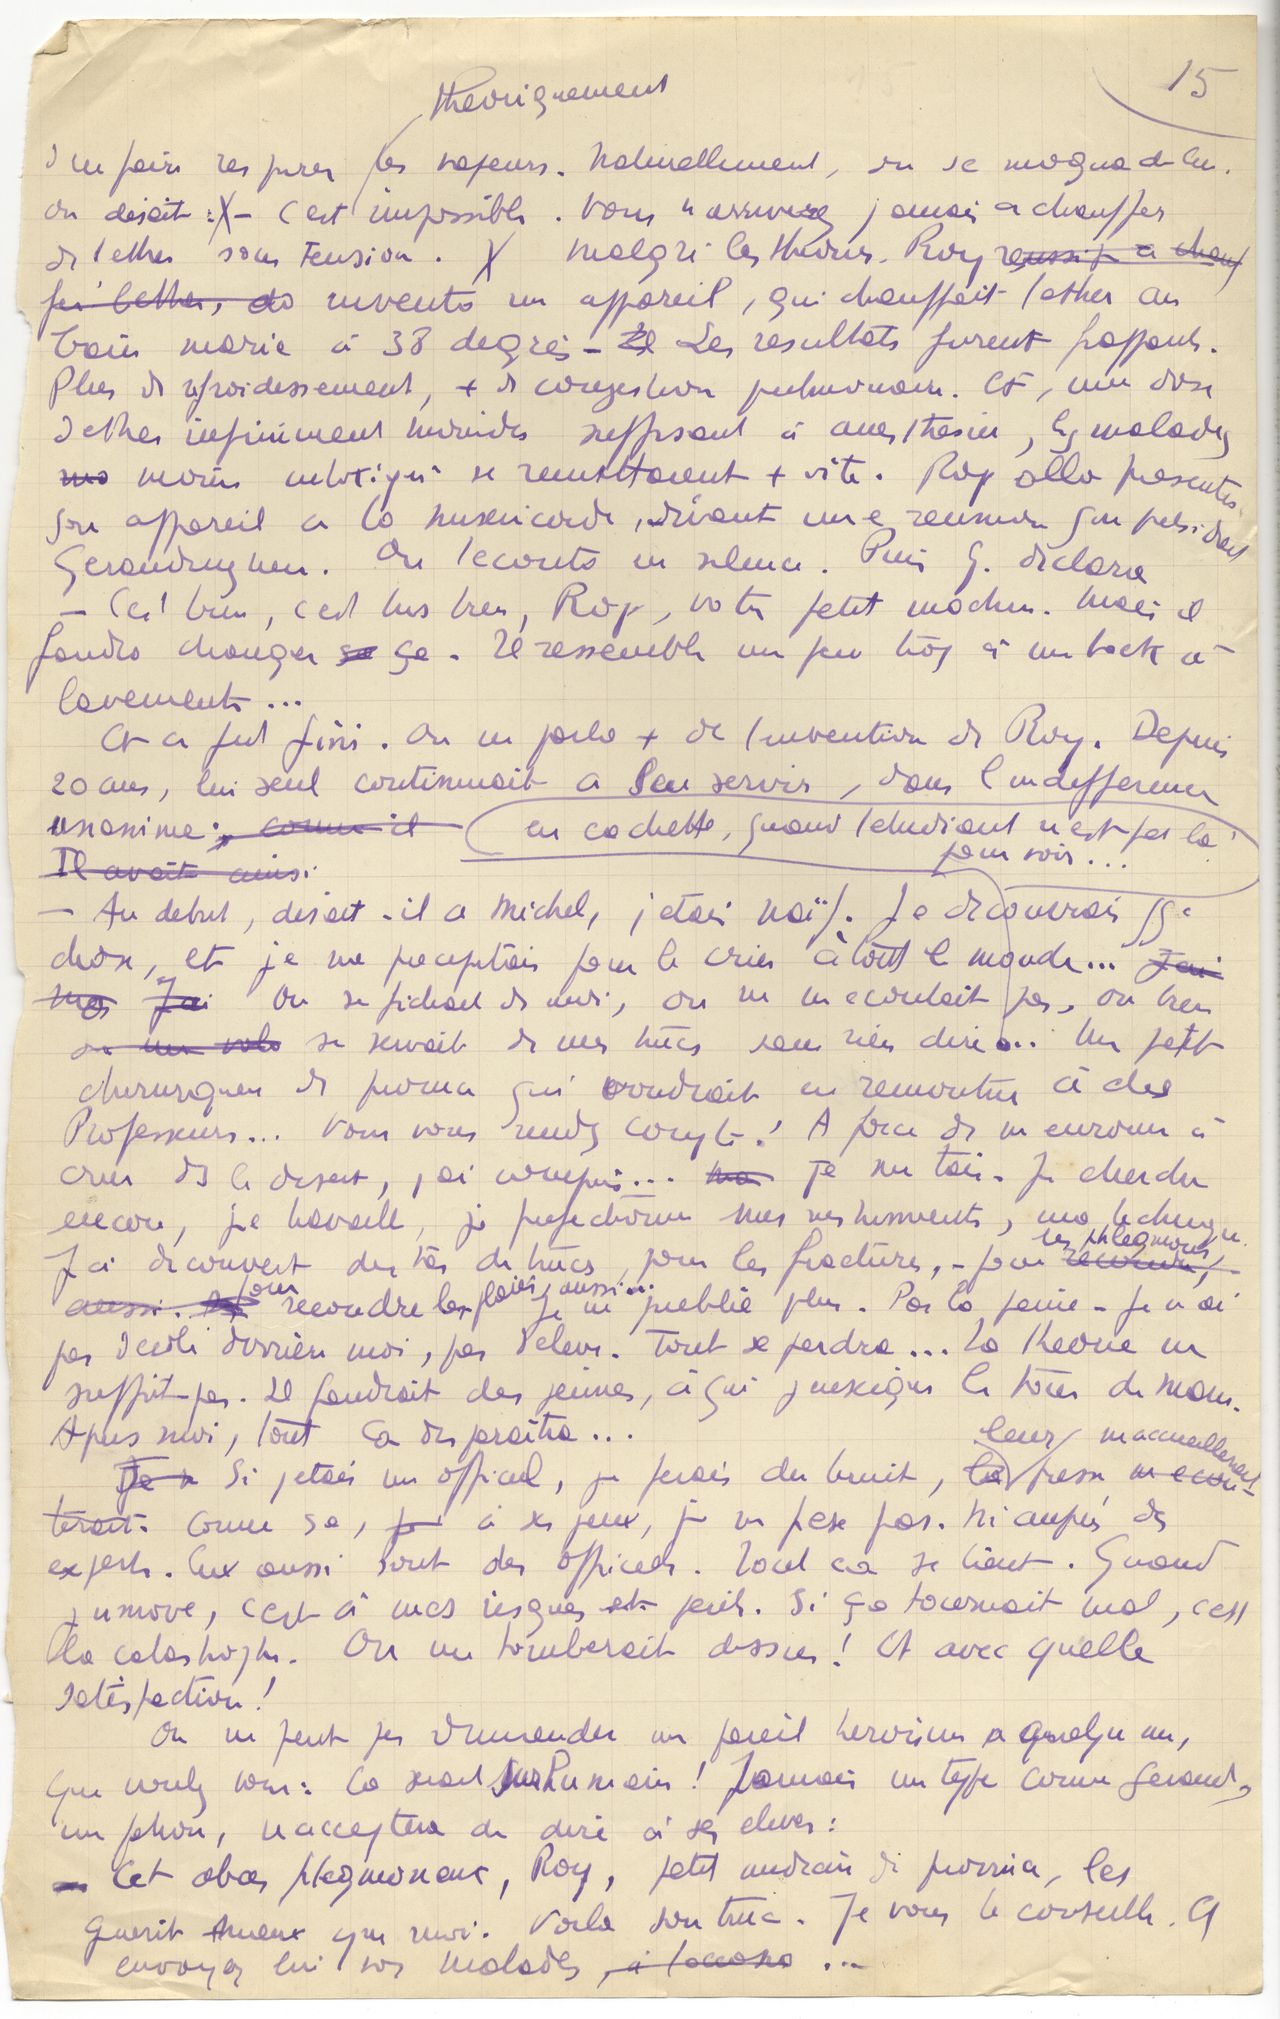 15
theoriquement
d'en faire respirer les vapeurs. Naturellement, on se moqua de lui.
On disait : X - C'est impossible. Vous n'arriverez jamais a chauffer
de l'ether sous tension. X Malgré les theories. Roy reussit a chauf
fer l'ether, do inventa un appareil, qui chauffait l'ether au
bain marie à 38 degrés - Il Les resultats furent frappants.
Plus de refroidissement, + de congestion pulmonaire. Et, une dose
d'ether infiniment moindre suffisant à anesthesier, les malades
mo moins intoxiqués se remettaient + vite. Roy alla presenter
son appareil a la Misericorde, devant une reunion que présidait
Geraudinghen. On l'ecouta en silence. Puis G. déclara
- C'est bien, c'est tres bien, Roy, votre petit machin. Mais il
faudra changer sa ça. Il ressemble un peu trop à un bock à
lavements...
Et ce fut fini. On ne parla + de l'invention de Roy. Depuis
20 ans, lui seul continuait a s'en servir, dans l'indifference
unanime. comme il en cachette, quand l'etudiant n'est pas là
pour voir...
Il avait ainsi
- Au debut, disait-il a Michel, j'etais naïf. Je decouvrais qq
chose, et je me precipitais pour le crier à tout le monde... J'ai
mo J'ai On se fichait de moi, on ne m'ecoutait pas, on bien
on me vola se servait de mes trucs sans rien dire... Un petit
chirurgien de province qui voudrait en remontrer à des
Professeurs... Vous vous rendez compte! A force de m'enrouer à
crier ds le desert, j'ai compris... ma Je me tais. Je cherche
encore, je travaille, je perfectionne mes instruments, ma technique.
J'ai decouvert des tas de trucs, pour les fractures, - pour recoudre, les phlegmons,
aussi. pour recoudre les plaies, aussi... Je ne publie plus. Pas la peine - Je n'ai
pas d'ecole derrière moi, pas d'eleves. Tout se perdra... La theorie ne
suffit pas. Il faudrait des jeunes, à qui j'enseigne le tour de main.
Apres moi, tout ça disparaîtra...
Je n Si j'etais un officiel, je ferais du bruit, la leur presse m'ecou m'accueillerait
terait. Comme ça, je à ses yeux, je ne pese pas. Ni auprès des
experts. Eux aussi sont des officiels. Tout ca se tient. Quand
j'innove, c'est à mes risques et perils. Si ça tournait mal, c'est
la catastrophe. On me tomberait dessus! Et avec quelle
satisfaction!
On ne peut pas demander un pareil heroisme a quelqu'un,
que voulez vous : Ca serait surhumain! Jamais un type comme Geraud,
un patron, n'acceptera de dire à ses eleves :
- Cet abces phlegmoneux, Roy, petit medecin de province, les
guerit mieux que moi. Voila son truc. Je vous le conseille. Et
envoyez lui vos malades, à l'occasio ...